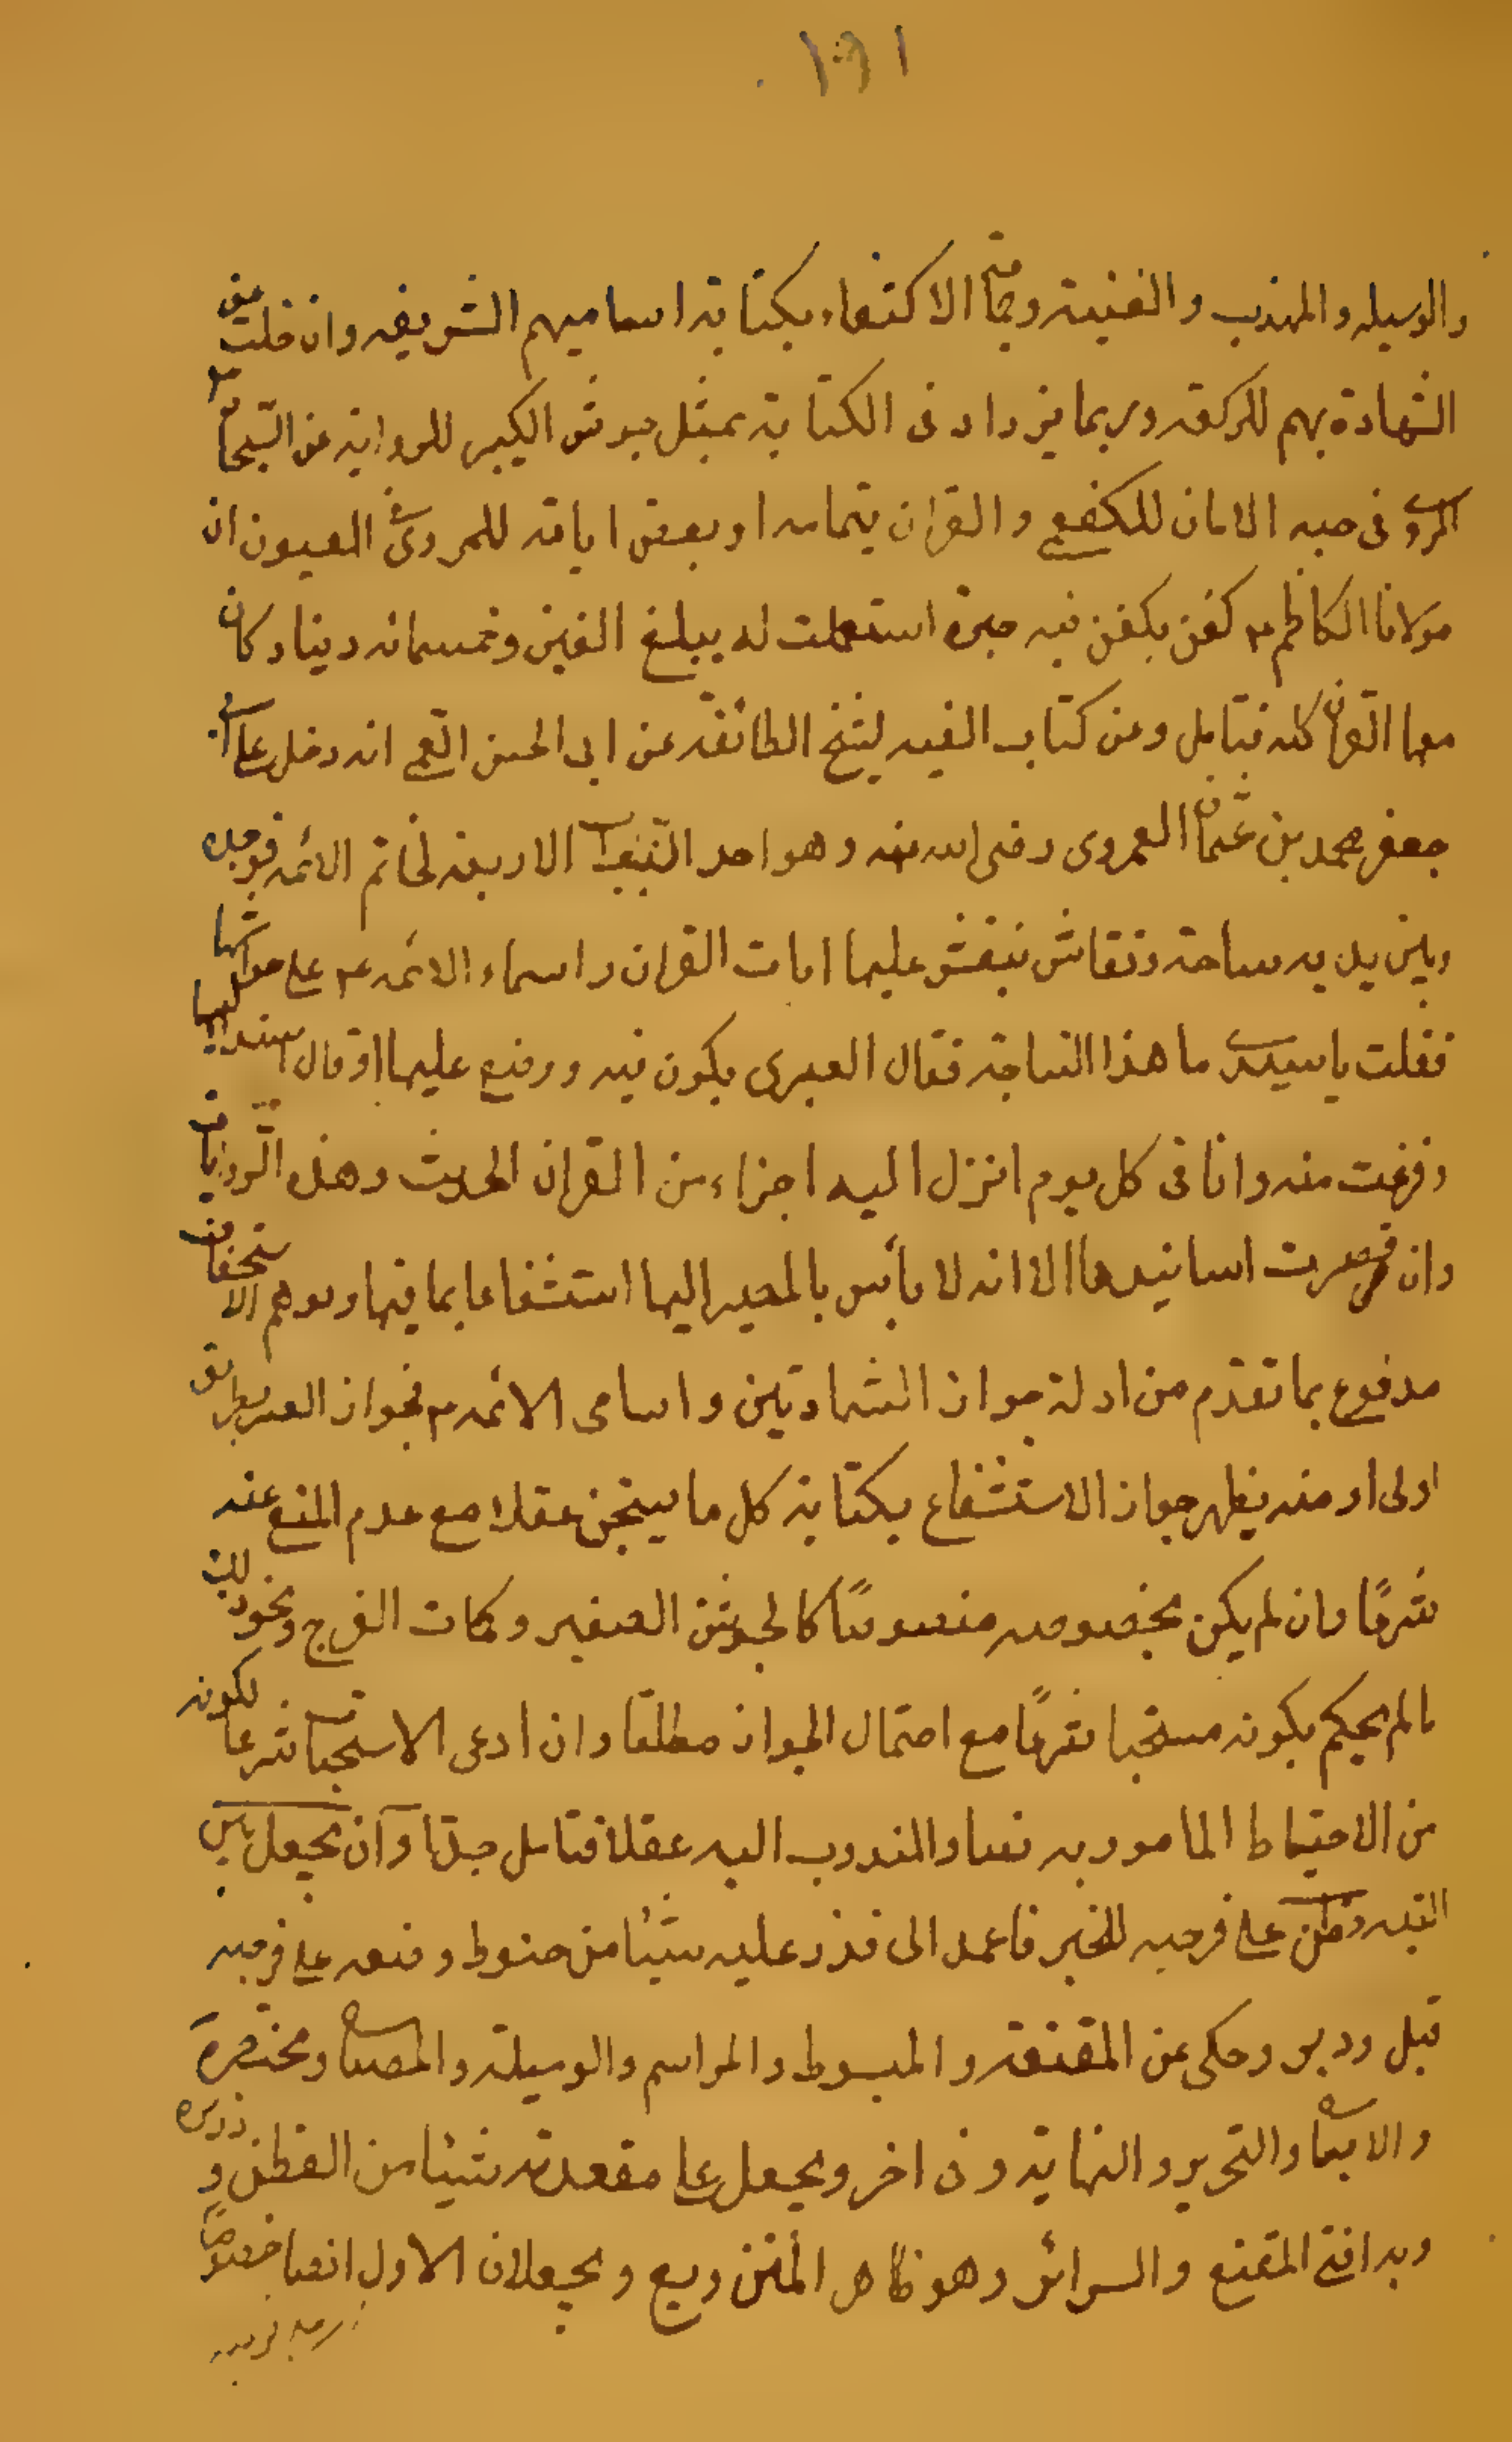 ١٩١
والوسيله والمهذب والغنية وربما الاكتفاء بكتابة اساميهم الشريفه وان خلت عن
الشهادة بهم للركعه وربما يزداد فى الكتابة بمثل جوشن الكبير للرواية عن السجاد ع
المروى فى جنه الامان للكفعمى والقران بتمامه او بعض اياته للمروى فى العيون ان
مولانا الكاظم ع كفن بكفن فيه حبرة استعملت له يبلغ الفين وخمسمائه دينار وكان
معها القران كله فتامل وعن كتاب الغيبه لشيخ الطائفه عن ابى الحسن القمى انه دخل على ابى
جعفر محمد بن عثمان العمروى رضى الله عنه وهو احد النواب الاربعه لخاتم الائمه فوجده
وبين يديه ساجة ونقاش ينقش عليها ايات القران واسماء الائمه ع على حواشيها
فقلت يا سيدى ما هذا الساجة فقال لقبرى يكون فيه ووضع عليها او قال اسند اليها
وفرغت منه وانا فى كل يوم انزل اليه اجزاء من القران الحديث وهذه الروايات
وان قصرت اسانيدها الا انه لا بأس بالمصير اليها استشفاعا بما فيها وتوهم الاستخفاف
مدفوع بما تقدم من ادلة جواز الشهادتين واسامى الائمه ع فجواز الغير بطريق
اولى او منه يظهر جواز الاستشفاع بكتابة كل ما يستحسن عقلا مع عدم المنع عنه
شرعًا وان لم يكن بخصوصه منصوصًا كالجوشن الصغير وكلمات الفرج ونحو ذلك
ما لم يحكم بكونه مستحبا شرعًا مع احتمال الجواز مطلقا وان ادعى الاستحباب شرعا لكونه
من الاحتياط المامور به نصا والمندوب اليه عقلا فتامل جدّا وان يجعل بين
اليتيه وقطن على فرجيه للخبر فاعمد الى فذر عليه شيئا من حنوط وضعه على فرجيه
قبل ودبر وحكى عن المقنعه والمبسوط والمراسم والوسيلة والمصباح ومختصره
والاصباح والتحرير والنهاية وفى اخر ويجعل على مقعدته شيئا من القطن وذريره
وبه افتى المقنع والسرائر وهو ظاهر المتن ويع ويجعلان الاول ايضا خصوصًا